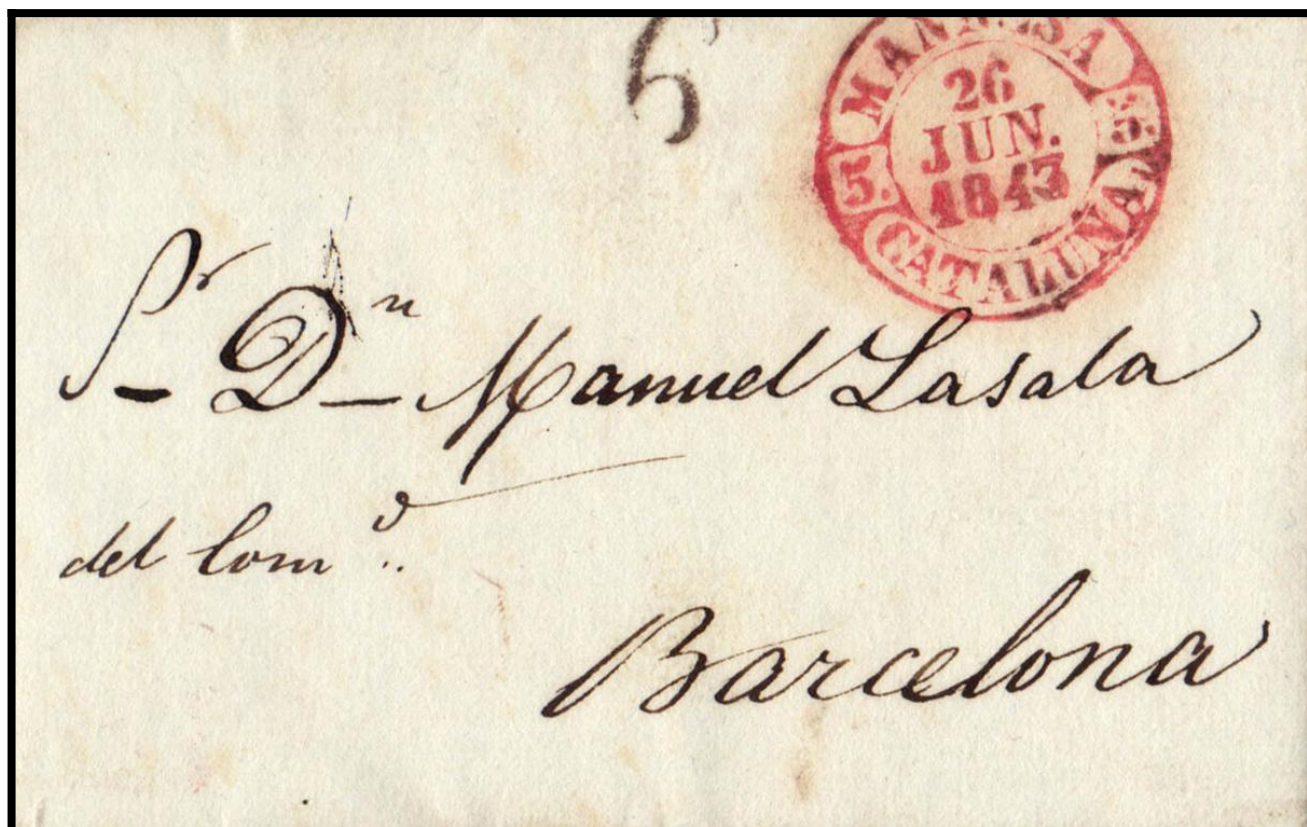 6
MANRESA
26
JUN.
1843
5. 5.
CATALUÑA.
Sr Dn Manuel Lasala
del Com o
Barcelona